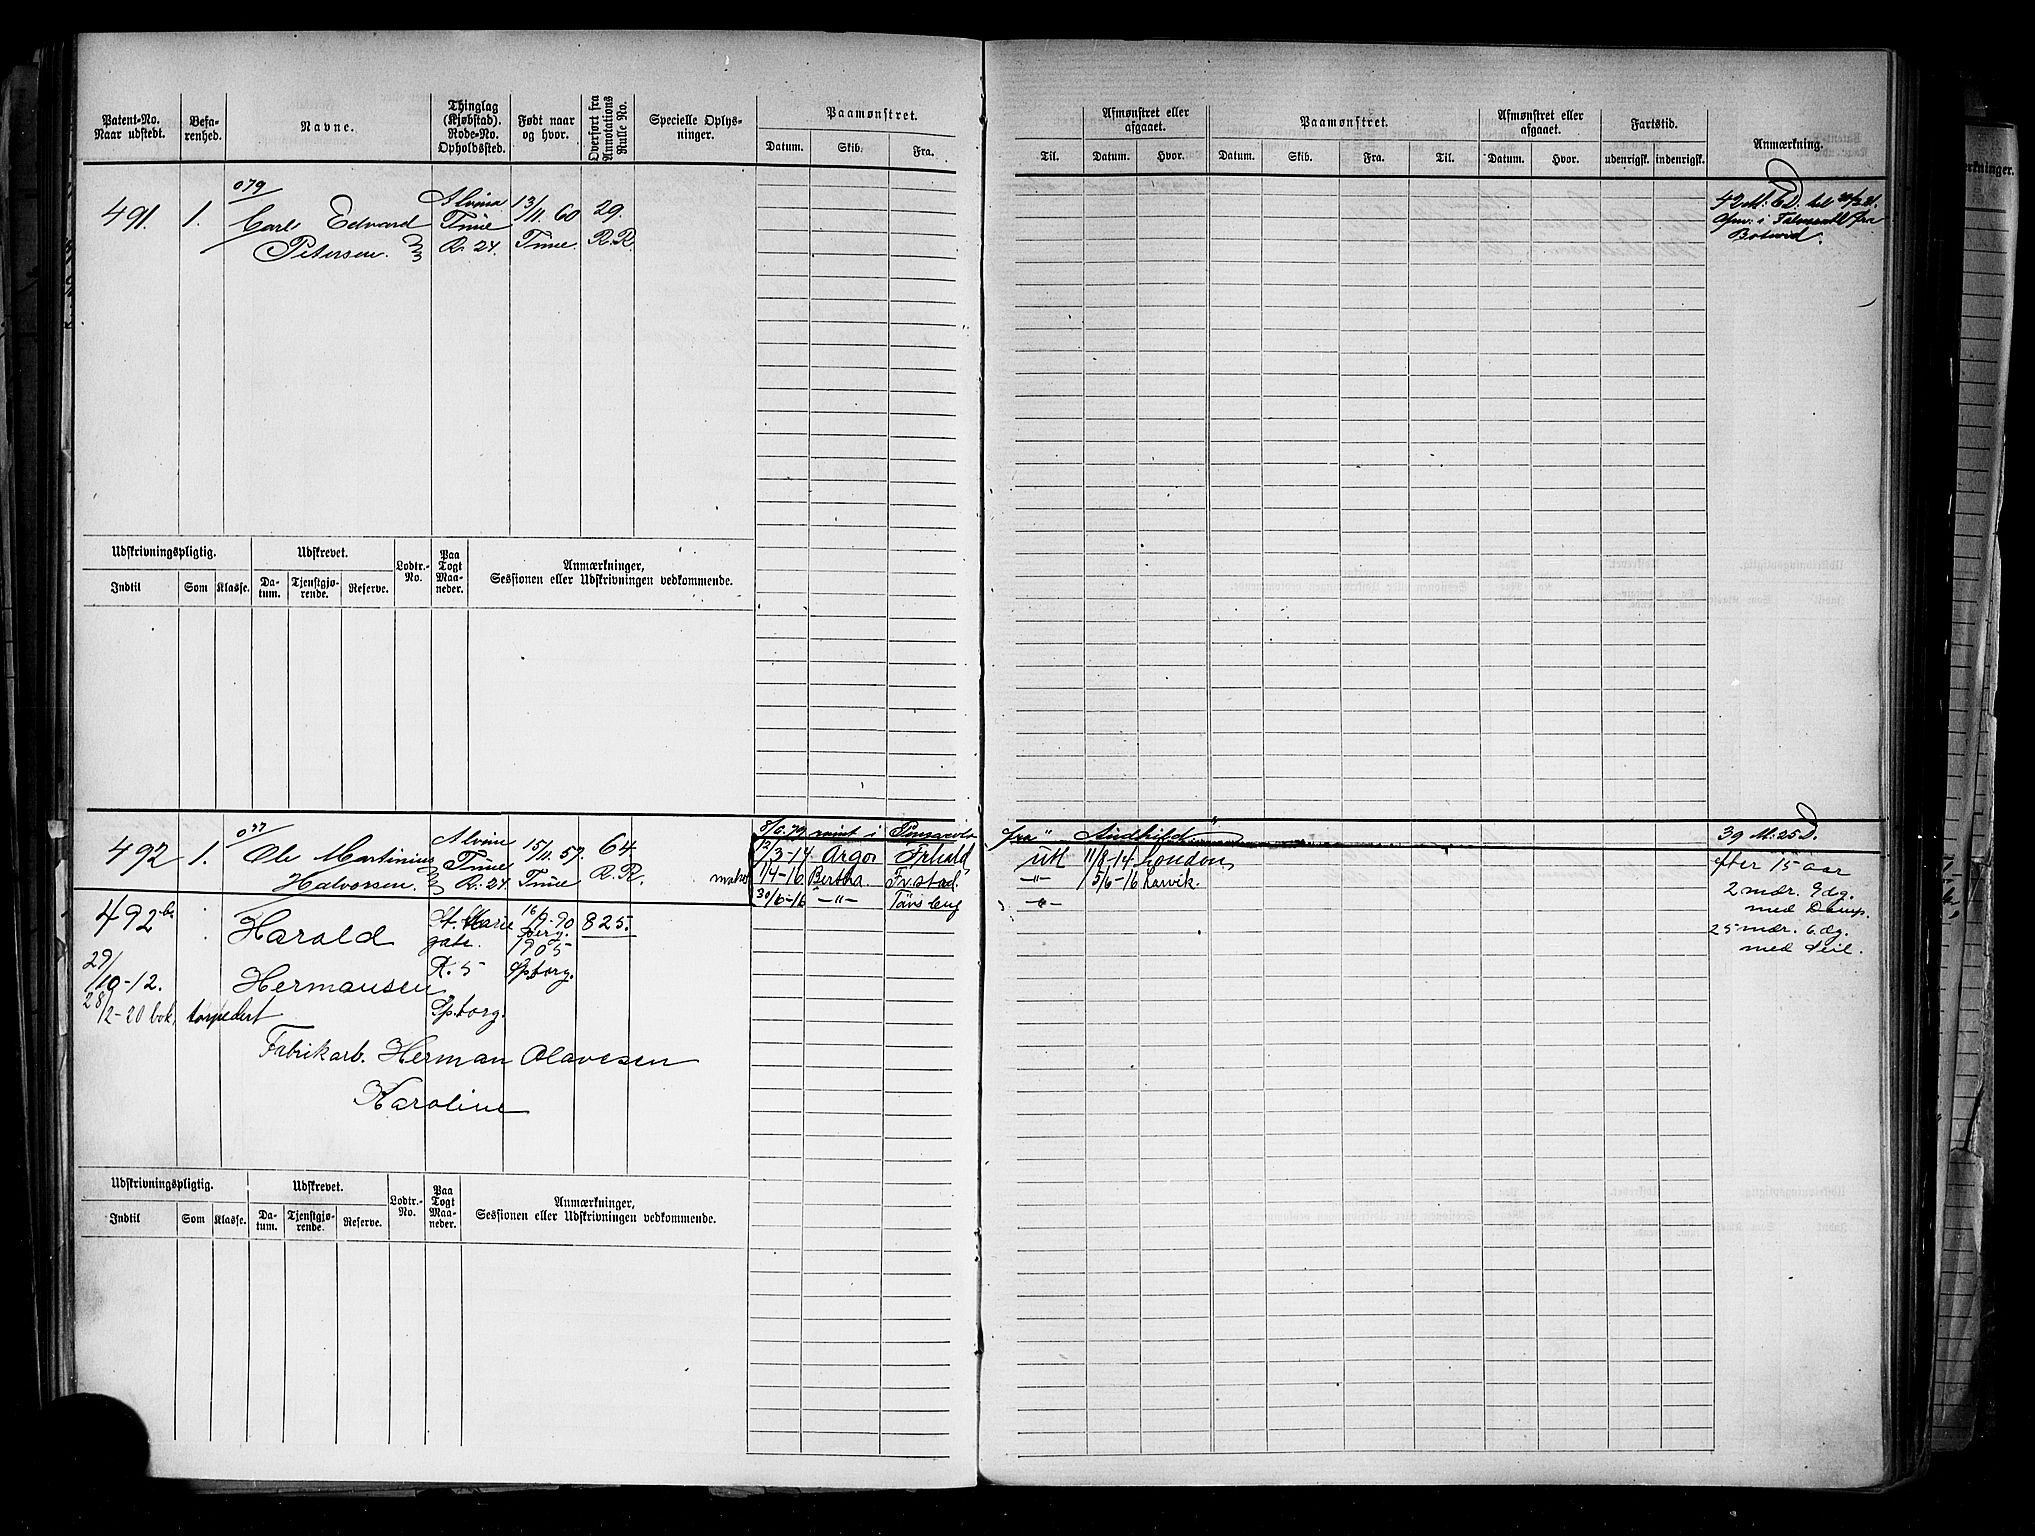 Patent-No. Naar udstedt.
Befarenhed.
Navne.
Thinglag (Kjøbstad). Rode-No. Opholdssted.
Født naar og hvor.
Overført fra Annotations Rulle No.
Specielle Oplysninger.
Paamønstret.
Datum. Skib. Fra.
Til.
Afmønstret eller afgaaet.
Datum. Hvor.
Paamønstret.
Datum. Skib. Fra. Til.
Afmønstret eller afgaaet.
Datum. Hvor.
Fartstid.
udenrigsk. indenrigsk.
Anmærkning.
079
491. 1. Carl Edvard Alvim 13/11 60 29.
Petersen. Tune R. 24. Tune R.R.
Udskrivningspligtig. Udskrevet. Lodtr.-No. Paa Togt Maaneder. Anmærkninger,
Sessionen eller Udskrivningen vedkommende.
Indtil Som Klasse. Datum. Tjenstgjørende. Reserve.
492 1. Ole Martinius Alvim 15/11. 57. 64
Halvorsen. Tune R. 24. Tune R.R.
39 M. 25 D.
12/3-14. Argo Frhald Utl 11/8-14 London
1/4-16 Bertha. Fr.stad. -"- 5/6-16 Larvik.
30/6-16 -"- -"-
efter 15 aar
2 mdr. 9 dg.
med Damp.
25 mdr. 6 dg.
med Seil.
492 Harold St. Marie 16/9-90 825.
gate. 1905
29/10-12. Hermansen R. 5 Spborg.
28/2-20 bok, torpedert Spborg.
Fabrikarb. Herman Olavesen
Karoline
Udskrivningspligtig. Udskrevet. Lodtr.-No. Paa Togt Maaneder. Anmærkninger,
Sessionen eller Udskrivningen vedkommende.
Indtil Som Klasse. Datum. Tjenstgjørende. Reserve.